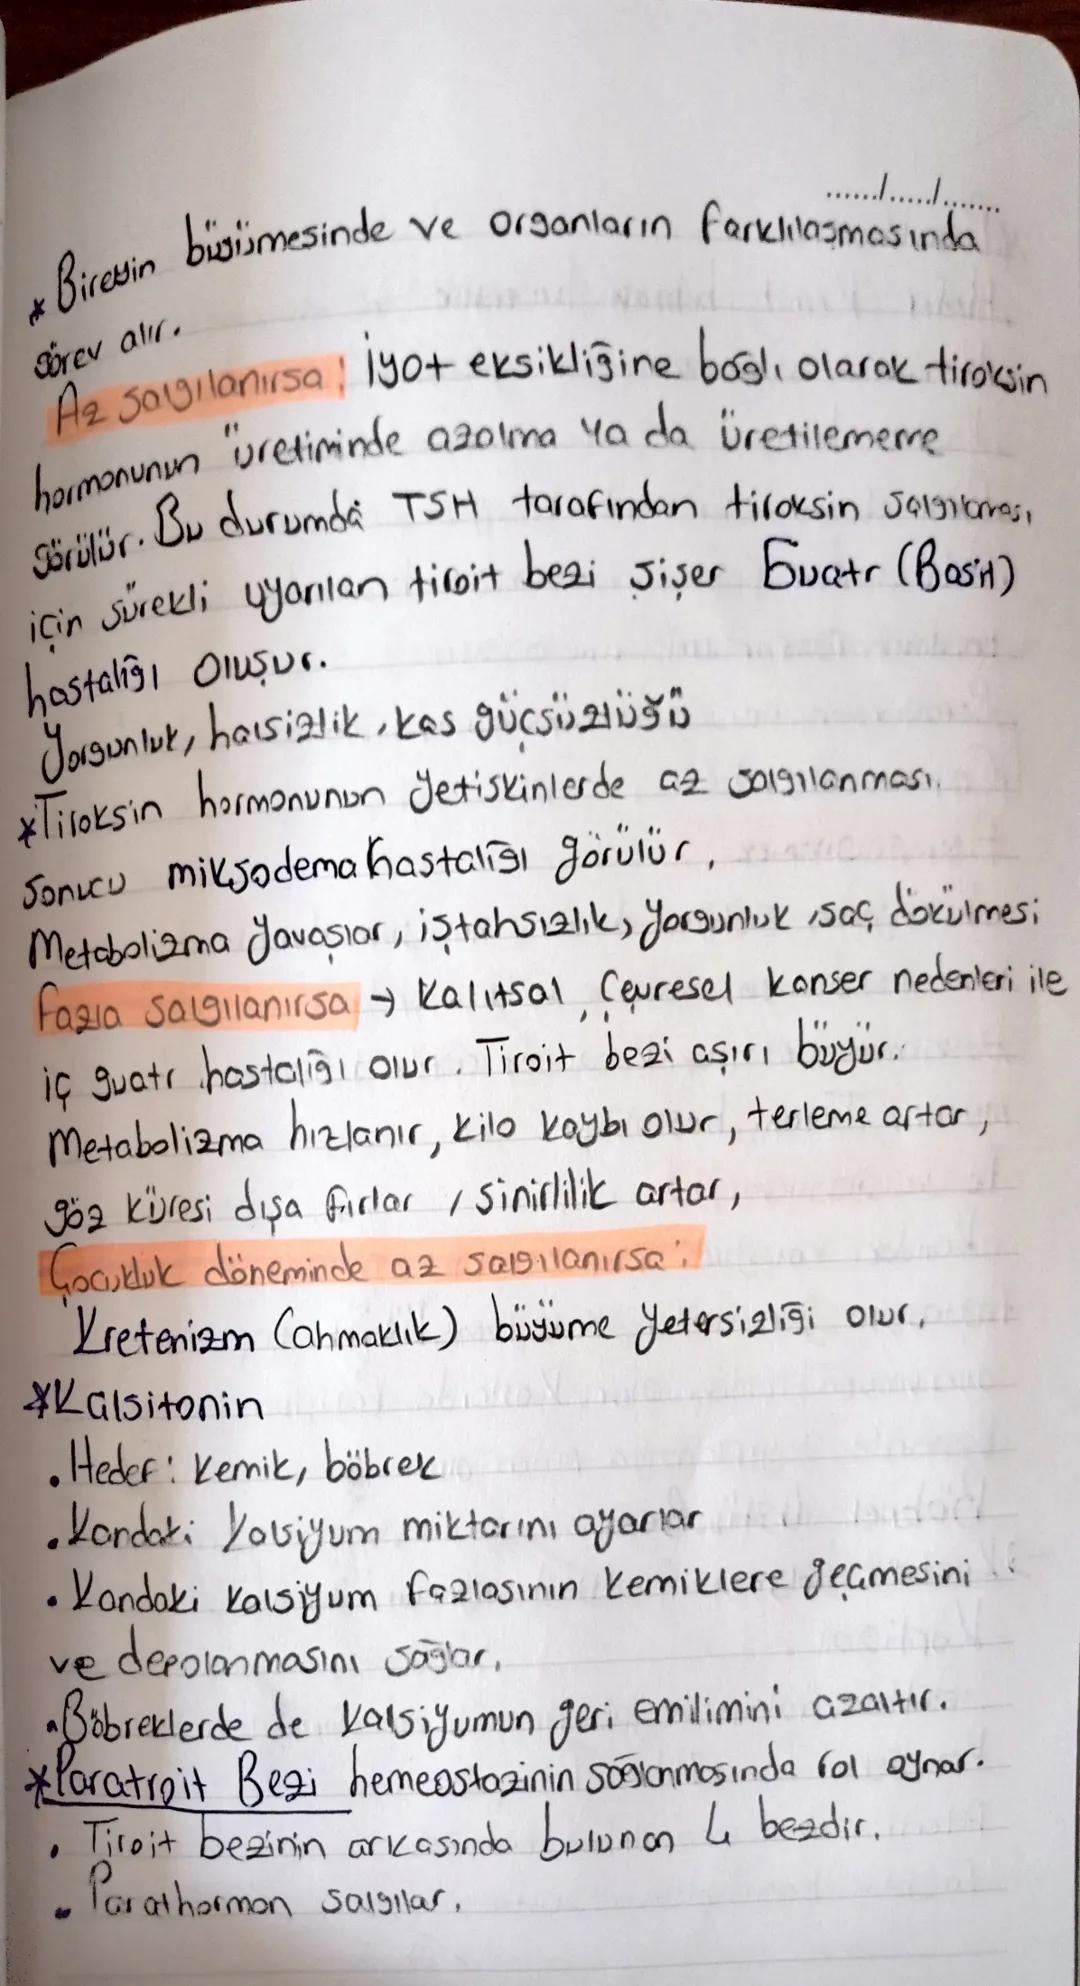 ....../....../........
* Bireyin büyümesinde ve organların farklılaşmasında
görev alır.
Az salgılanırsa: İyot eksikliğine bağlı olarak tiroksin
hormonunun üretiminde azalma ya da üretilememe
görülür. Bu durumda TSH tarafından tiroksin salgılaması
için sürekli uyarılan tiroit bezi şişer Guatr (Basit)
hastalığı oluşur.
Yorgunluk, halsizlik, kas güçsüzlüğü
*Tiroksin hormonunun yetişkinlerde az salgılanması
sonucu miksodema hastalığı görülür,
Metabolizma yavaşlar, iştahsızlık, yorgunluk, saç dökülmesi
fazla salgılanırsa → Kalıtsal, Çevresel kanser nedenleri ile
iç guatr hastalığı olur. Tiroit bezi aşırı büyür.
Metabolizma hızlanır, kilo kaybı olur, terleme artar,
göz küresi dışa fırlar, sinirlilik artar,
Çocukluk döneminde az salgılanırsa:
Kretenizm (ahmaklık) büyüme yetersizliği olur,
*Kalsitonin
. Hedef: Kemik, böbrek
. Kandaki kalsiyum miktarını ayarlar
. Kandaki kalsiyum fazlasının kemiklere geçmesini
ve depolanmasını sağlar.
. Böbreklerde de kalsiyumun geri emilimini azaltır.
*Paratroit Bezi hemeostazinin sağlanmasında rol oynar.
. Tiroit bezinin arkasında bulunan 4 bezdir.
. Parathormon salgılar.